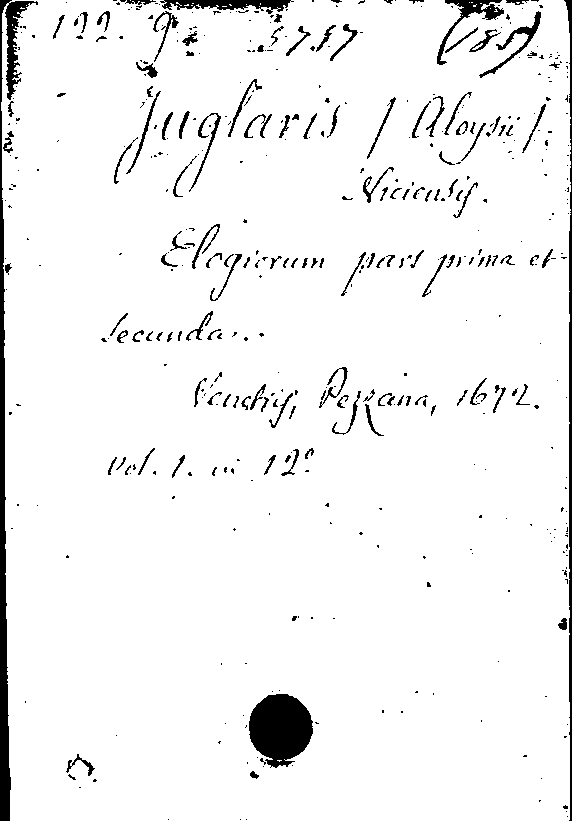 122. g 5757 (185)
Juglaris / Aloysii /.
Niciensis.
Elogiorum pars prima et
secunda...
Venetiis, Pezzana, 1672.
vol. 1. in 12º